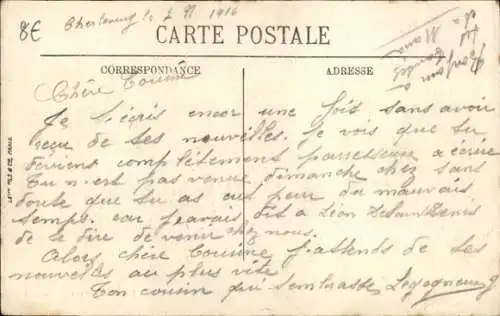 8€
Cherbourg le 2 11 1916
CARTE POSTALE
CORRESPONDANCE
ADRESSE
Chère Cousine
Je t'écris encor une fois sans avoir
reçu de tes nouvelles. Je vois que tu
deviens complètement paresseuse a écrire
Tu n'est pas venue dimanche chez sans
doute que tu as eus peur du mauvais
temps. car j'avais dit a Léon De Saint Denis
de te dire de venir chez nous.
Alors chère Cousine j'attends de tes
nouvelles au plus vite
Ton cousin qui t'embrasse